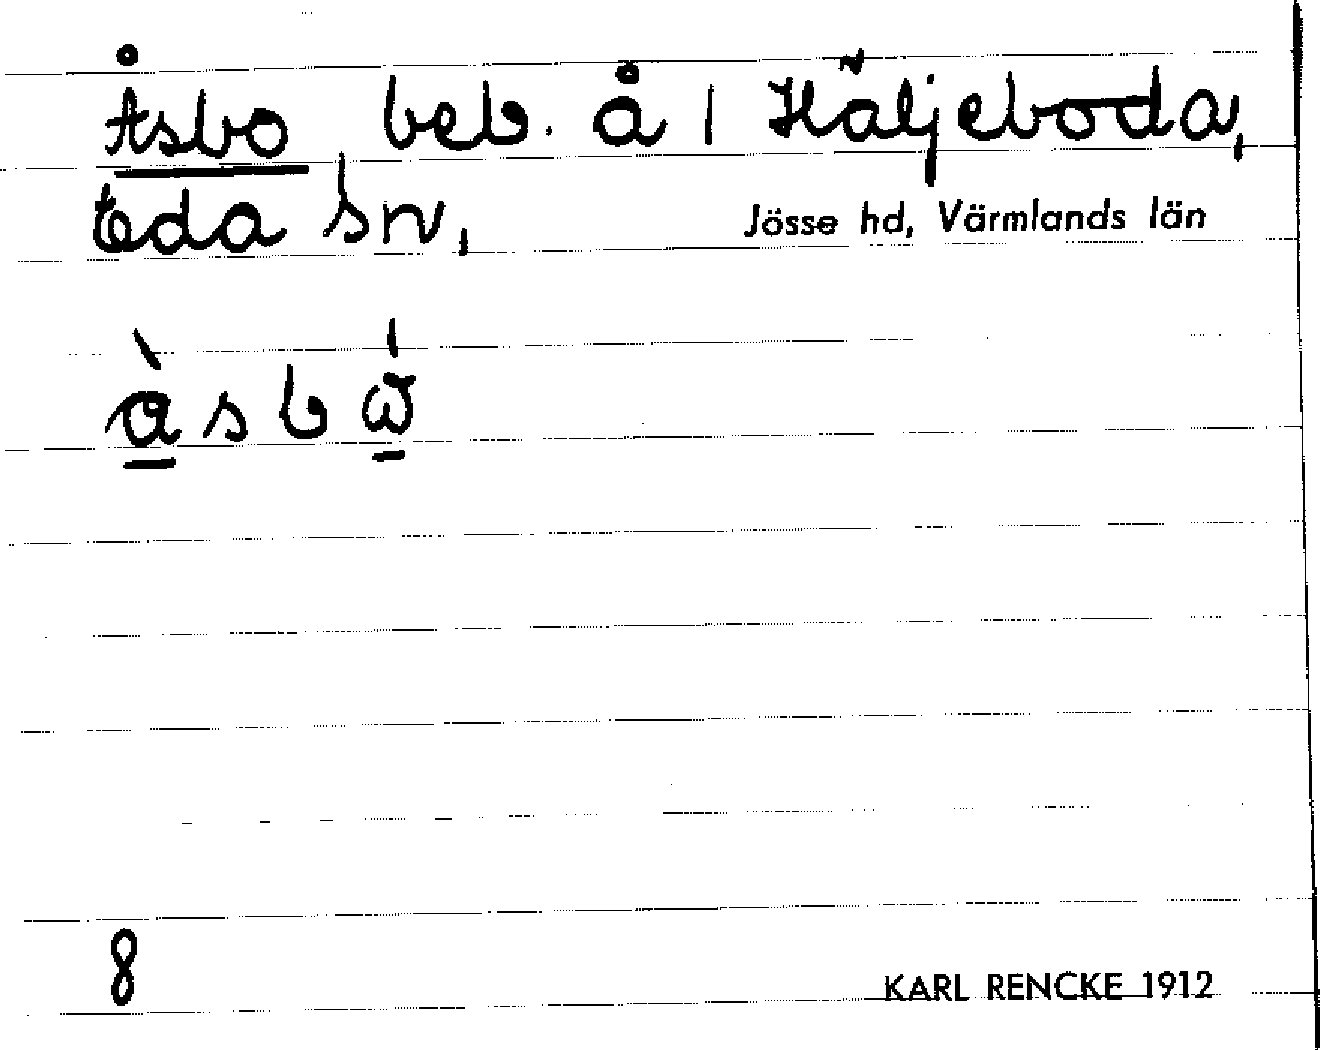 Åsbo beb. å 1 Häljeboda,
Eda sn, Jösse hd, Värmlands län
åsbω
8
KARL RENCKE 1912